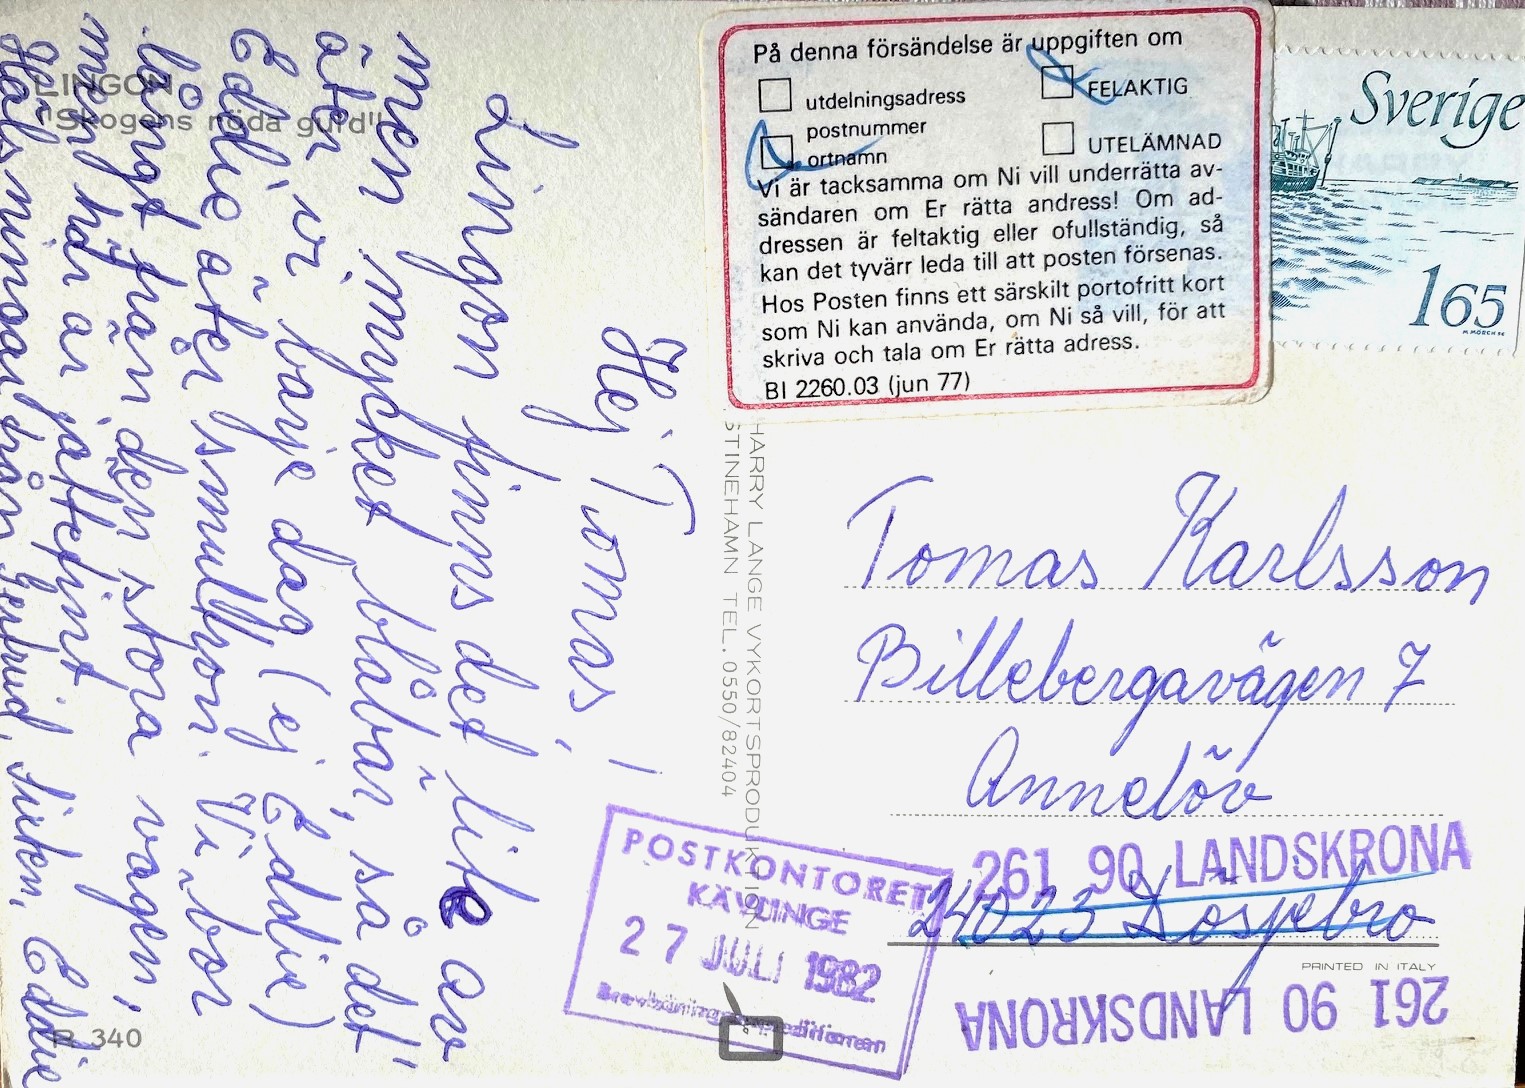 LINGON
"Skogens röda guld"
Hej Tomas,
Lingon finns det lite av
men mycket blåbär, så det
äter vi varje dag (ej Eddie)
Eddie äter smultron. Vi bor
långt från den stora vägen,
men här är jättefint.
Hälsningar från Gertrud, Sixten, Eddie
R 340
På denna försändelse är uppgiften om
utdelningsadress
postnummer
ortnamn
FELAKTIG
UTELÄMNAD
Vi är tacksamma om Ni vill underrätta av-
sändaren om Er rätta andress! Om ad-
dressen är feltaktig eller ofullständig, så
kan det tyvärr leda till att posten försenas.
Hos Posten finns ett särskilt portofritt kort
som Ni kan använda, om Ni så vill, för att
skriva och tala om Er rätta adress.
BI 2260.03 (jun 77)
Sverige
165
M. MÖRCK SC
HARRY LANGE VYKORTSPRODUKTION
STINEHAMN TEL. 0550/82404
Tomas Karlsson
Billebergavägen 7
Annelöv
261 90 LANDSKRONA
24023 Dösjebro
PRINTED IN ITALY
261 90 LANDSKRONA
POSTKONTORET
KÄVLINGE
27 JULI 1982